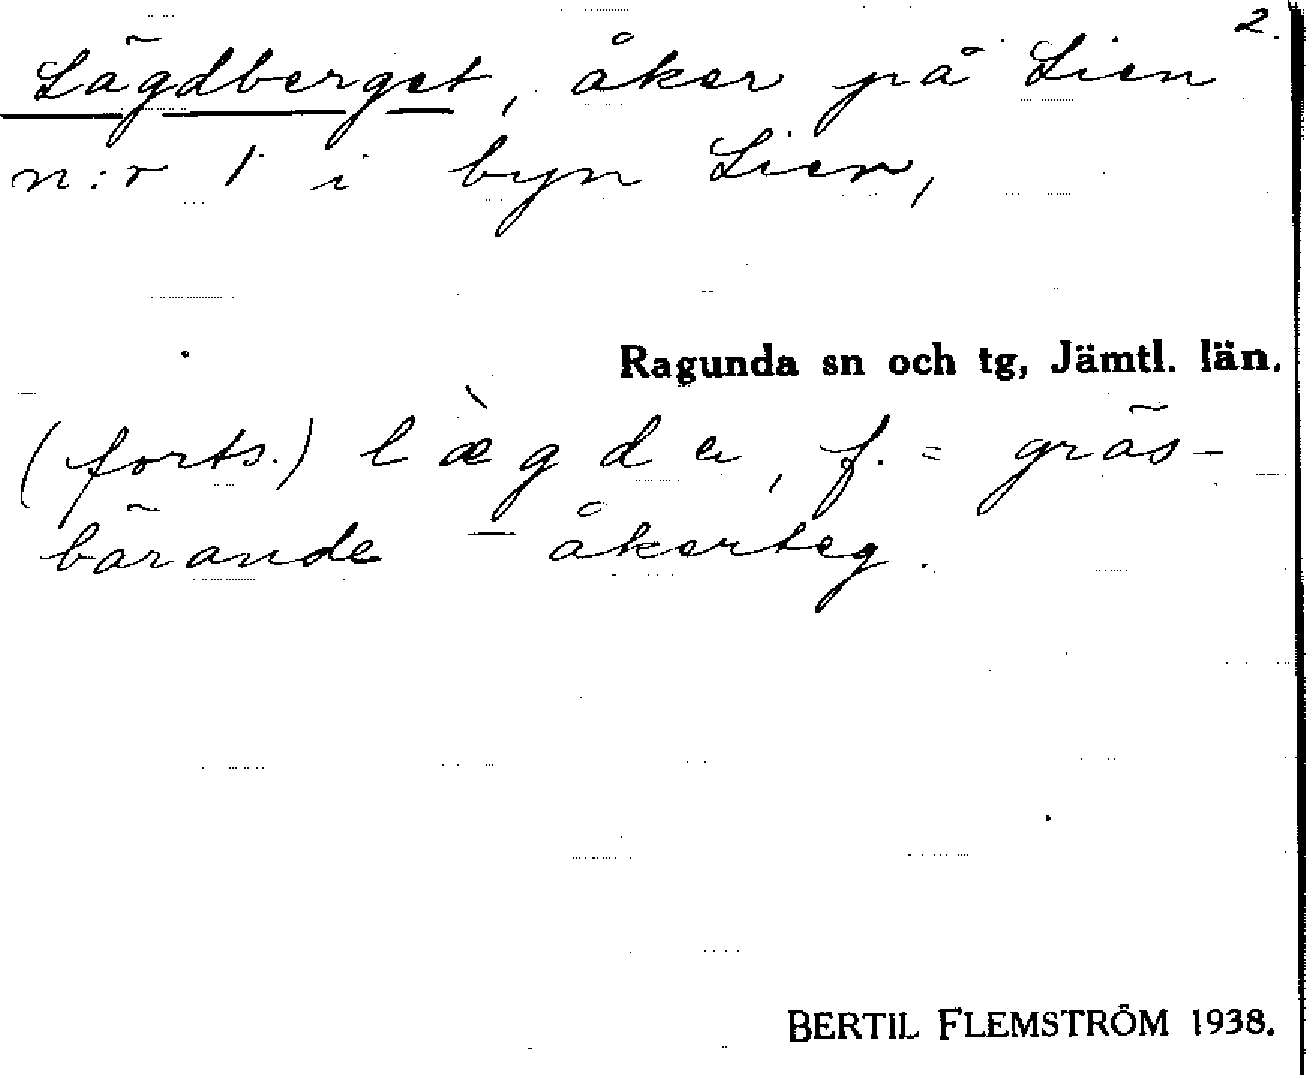 2.
Lägdberget, åker på Lien
n:r 1 i byn Lien,
Ragunda sn och tg, Jämtl. län.
(forts.) læ̀gda, f. = gräs-
bärande åkerteg.
BERTIL FLEMSTRÖM 1938.